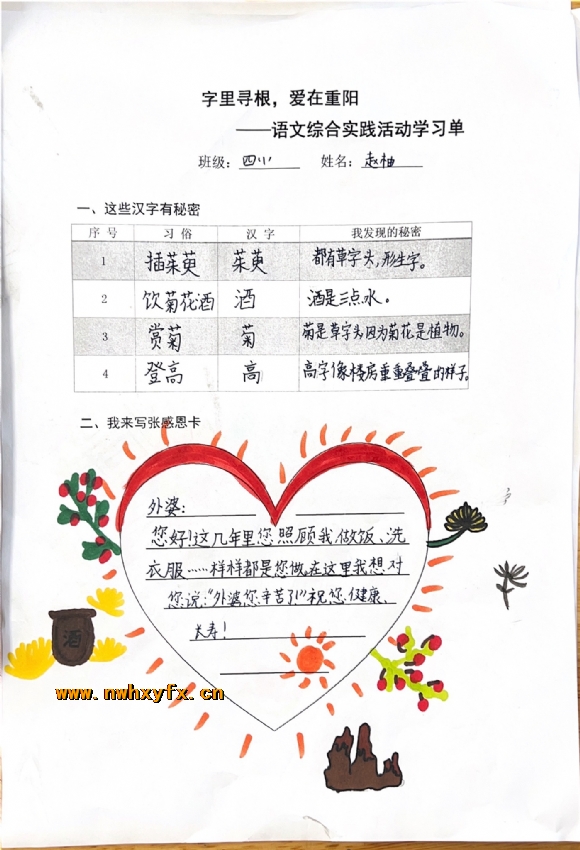 字里寻根，爱在重阳
——语文综合实践活动学习单
班级：四小 姓名：赵柚
一、这些汉字有秘密
序号 习俗 汉字 我发现的秘密
1 插茱萸 茱萸 都有草字头，形生字。
2 饮菊花酒 酒 酒是三点水。
3 赏菊 菊 菊是草字头因为菊花是植物。
4 登高 高 高字像楼房重重叠叠的样子。
二、我来写张感恩卡
外婆：
您好！这几年里您照顾我，做饭、洗
衣服……样样都是您做，在这里我想对
您说：“外婆您辛苦了！”祝您健康、
长寿！
酒
www.nwhxyfx.cn